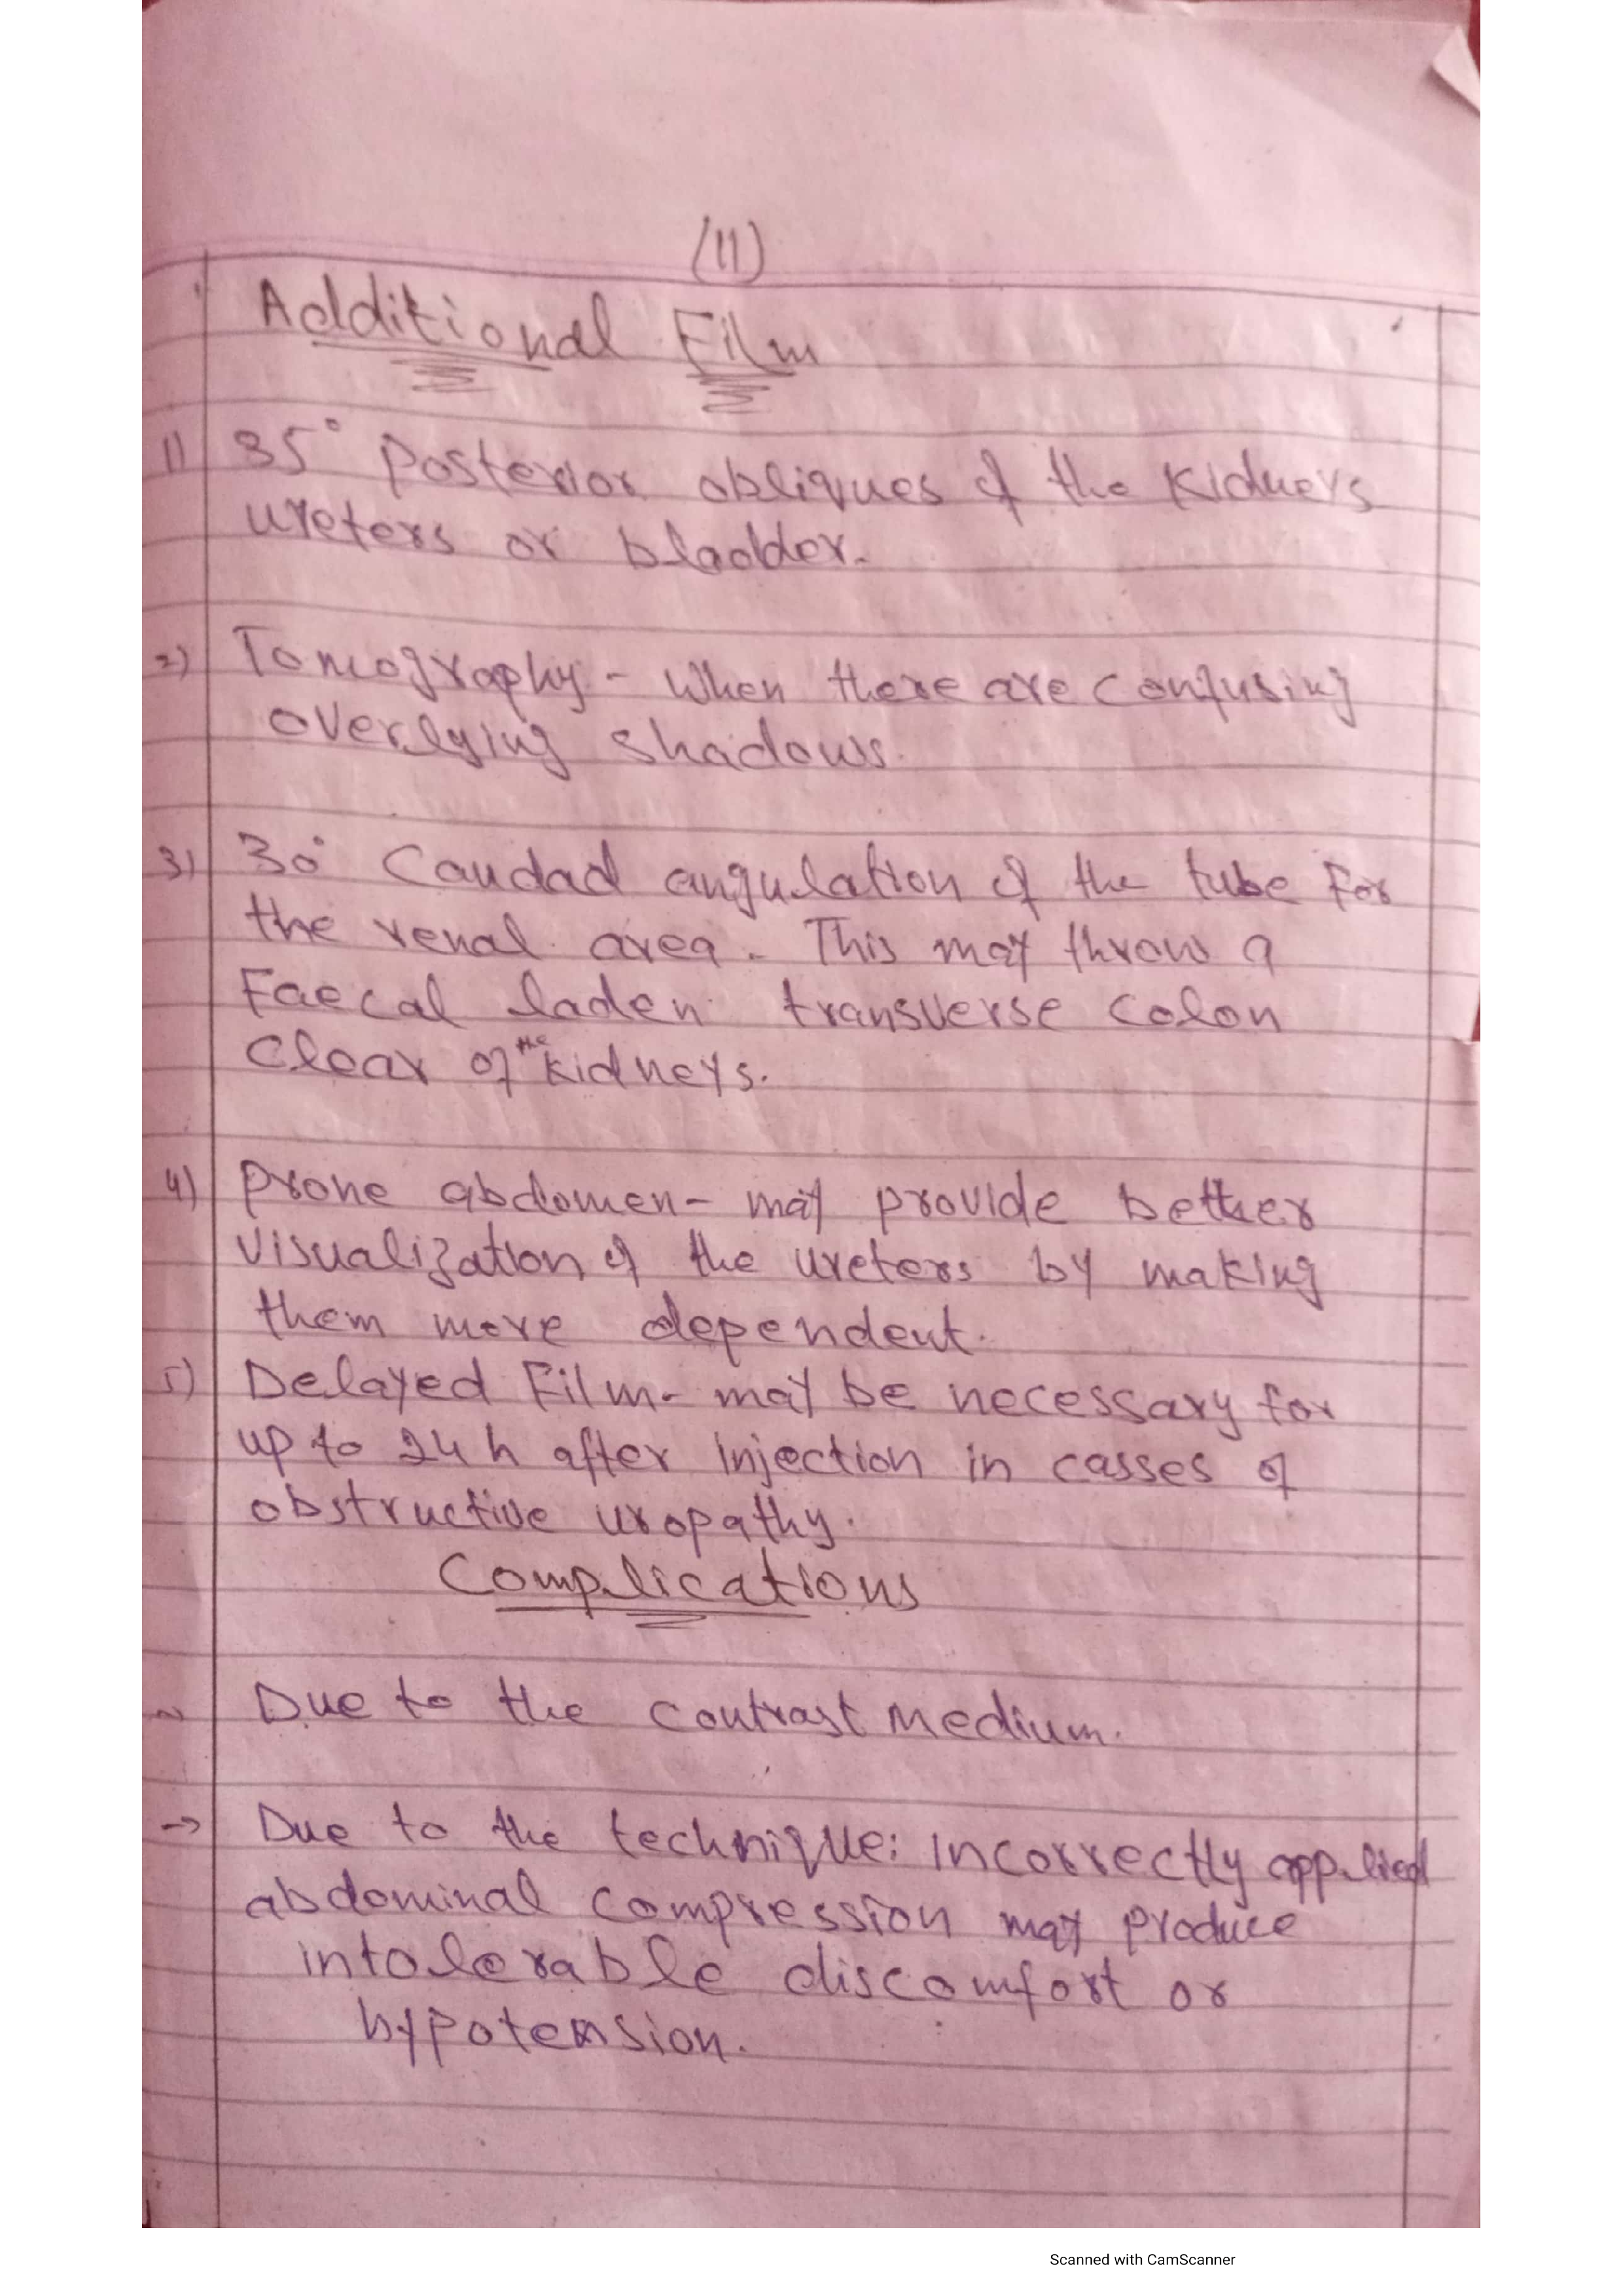 (11)
Additional Film
1) 35° Posterior obliques of the Kidneys
ureters or bladder.
2) Tomography - When there are confusing
overlying shadows.
3) 30° Caudad angulation of the tube For
the renal area. This may throw a
Faecal laden transverse colon
Clear of the kidneys.
4) Prone abdomen - may provide better
visualization of the ureters by making
them more dependent.
5) Delayed Film - may be necessary for
up to 24 h after injection in casses of
obstructive uropathy.
Complications
Due to the contrast Medium.
→ Due to the technique: Incorrectly applied
abdominal compression may produce
intolerable discomfort or
hypotension.
Scanned with CamScanner